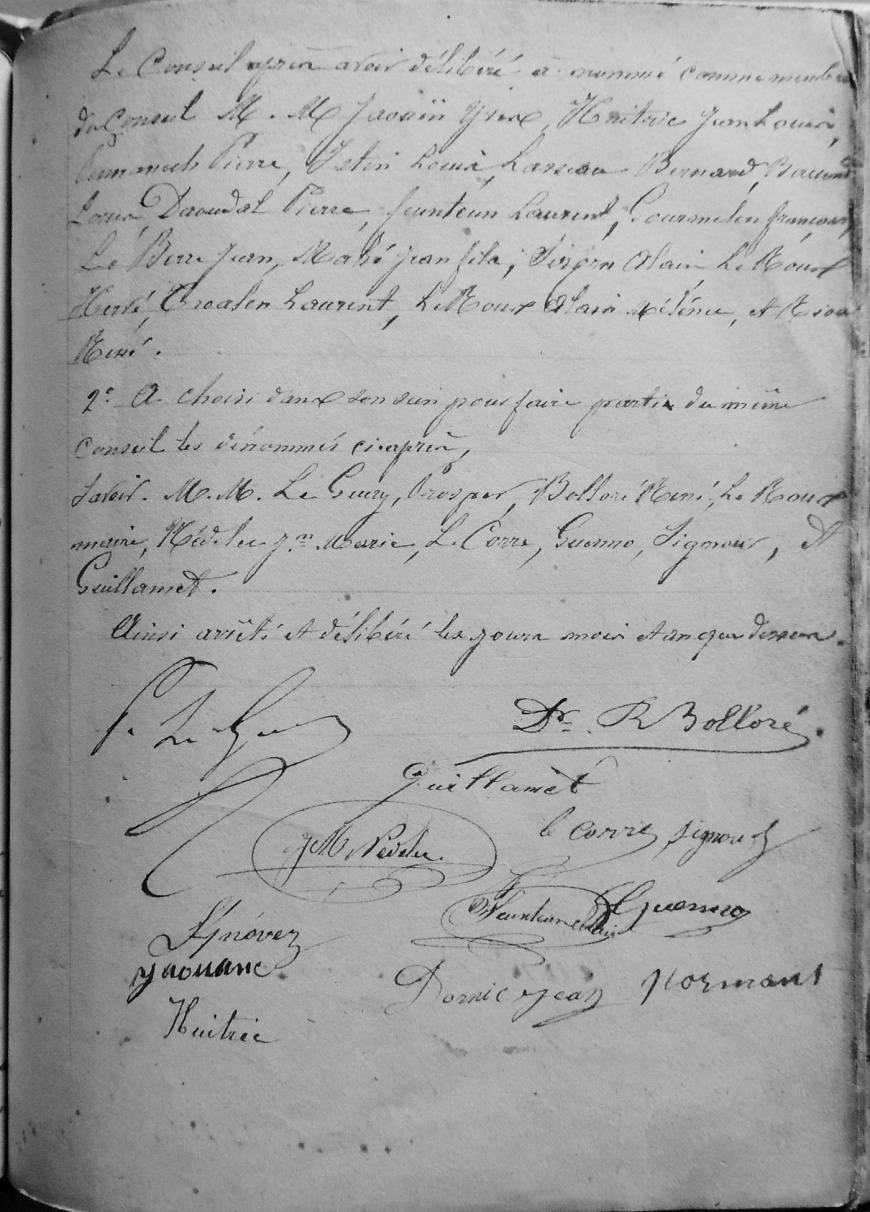 Le Conseil après avoir délibéré a nommé comme membres
du Conseil M. M Jaouën Yves, Huitric Jean Louis,
Pierre, Istin Louis, Lasseau Bernard,
Louis, Daoudal Pierre, feunteun Laurent, Gourmelen françois,
Le Berre Jean, Mahé Jean fils, Alain, Le Roux
Hervé, Croalen Laurent, Le Roux Alain Mélénec, et
René.
2° A choisi dans son sein pour faire partie du même
Conseil les dénommés ci-après,
Savoir. M. M. Le Guay, Prosper, Bolloré René, Le Roux
maire, Nédelec Jn Marie, Le Corre, Guenno, Signour, et
Guillamet.
Ainsi arrêté et délibéré les jours mois et an que dessus.
P. Le Gu
Dr. R Bolloré
Guillamet
le corre Signour
JM Nédelec
Guenno
Jaouanc
Dornic jean Normant
Huitric